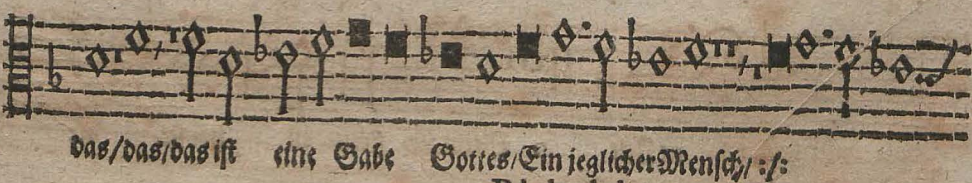 das/das/das ist eine Gabe Gottes/Ein jeglicher Mensch/ :/: